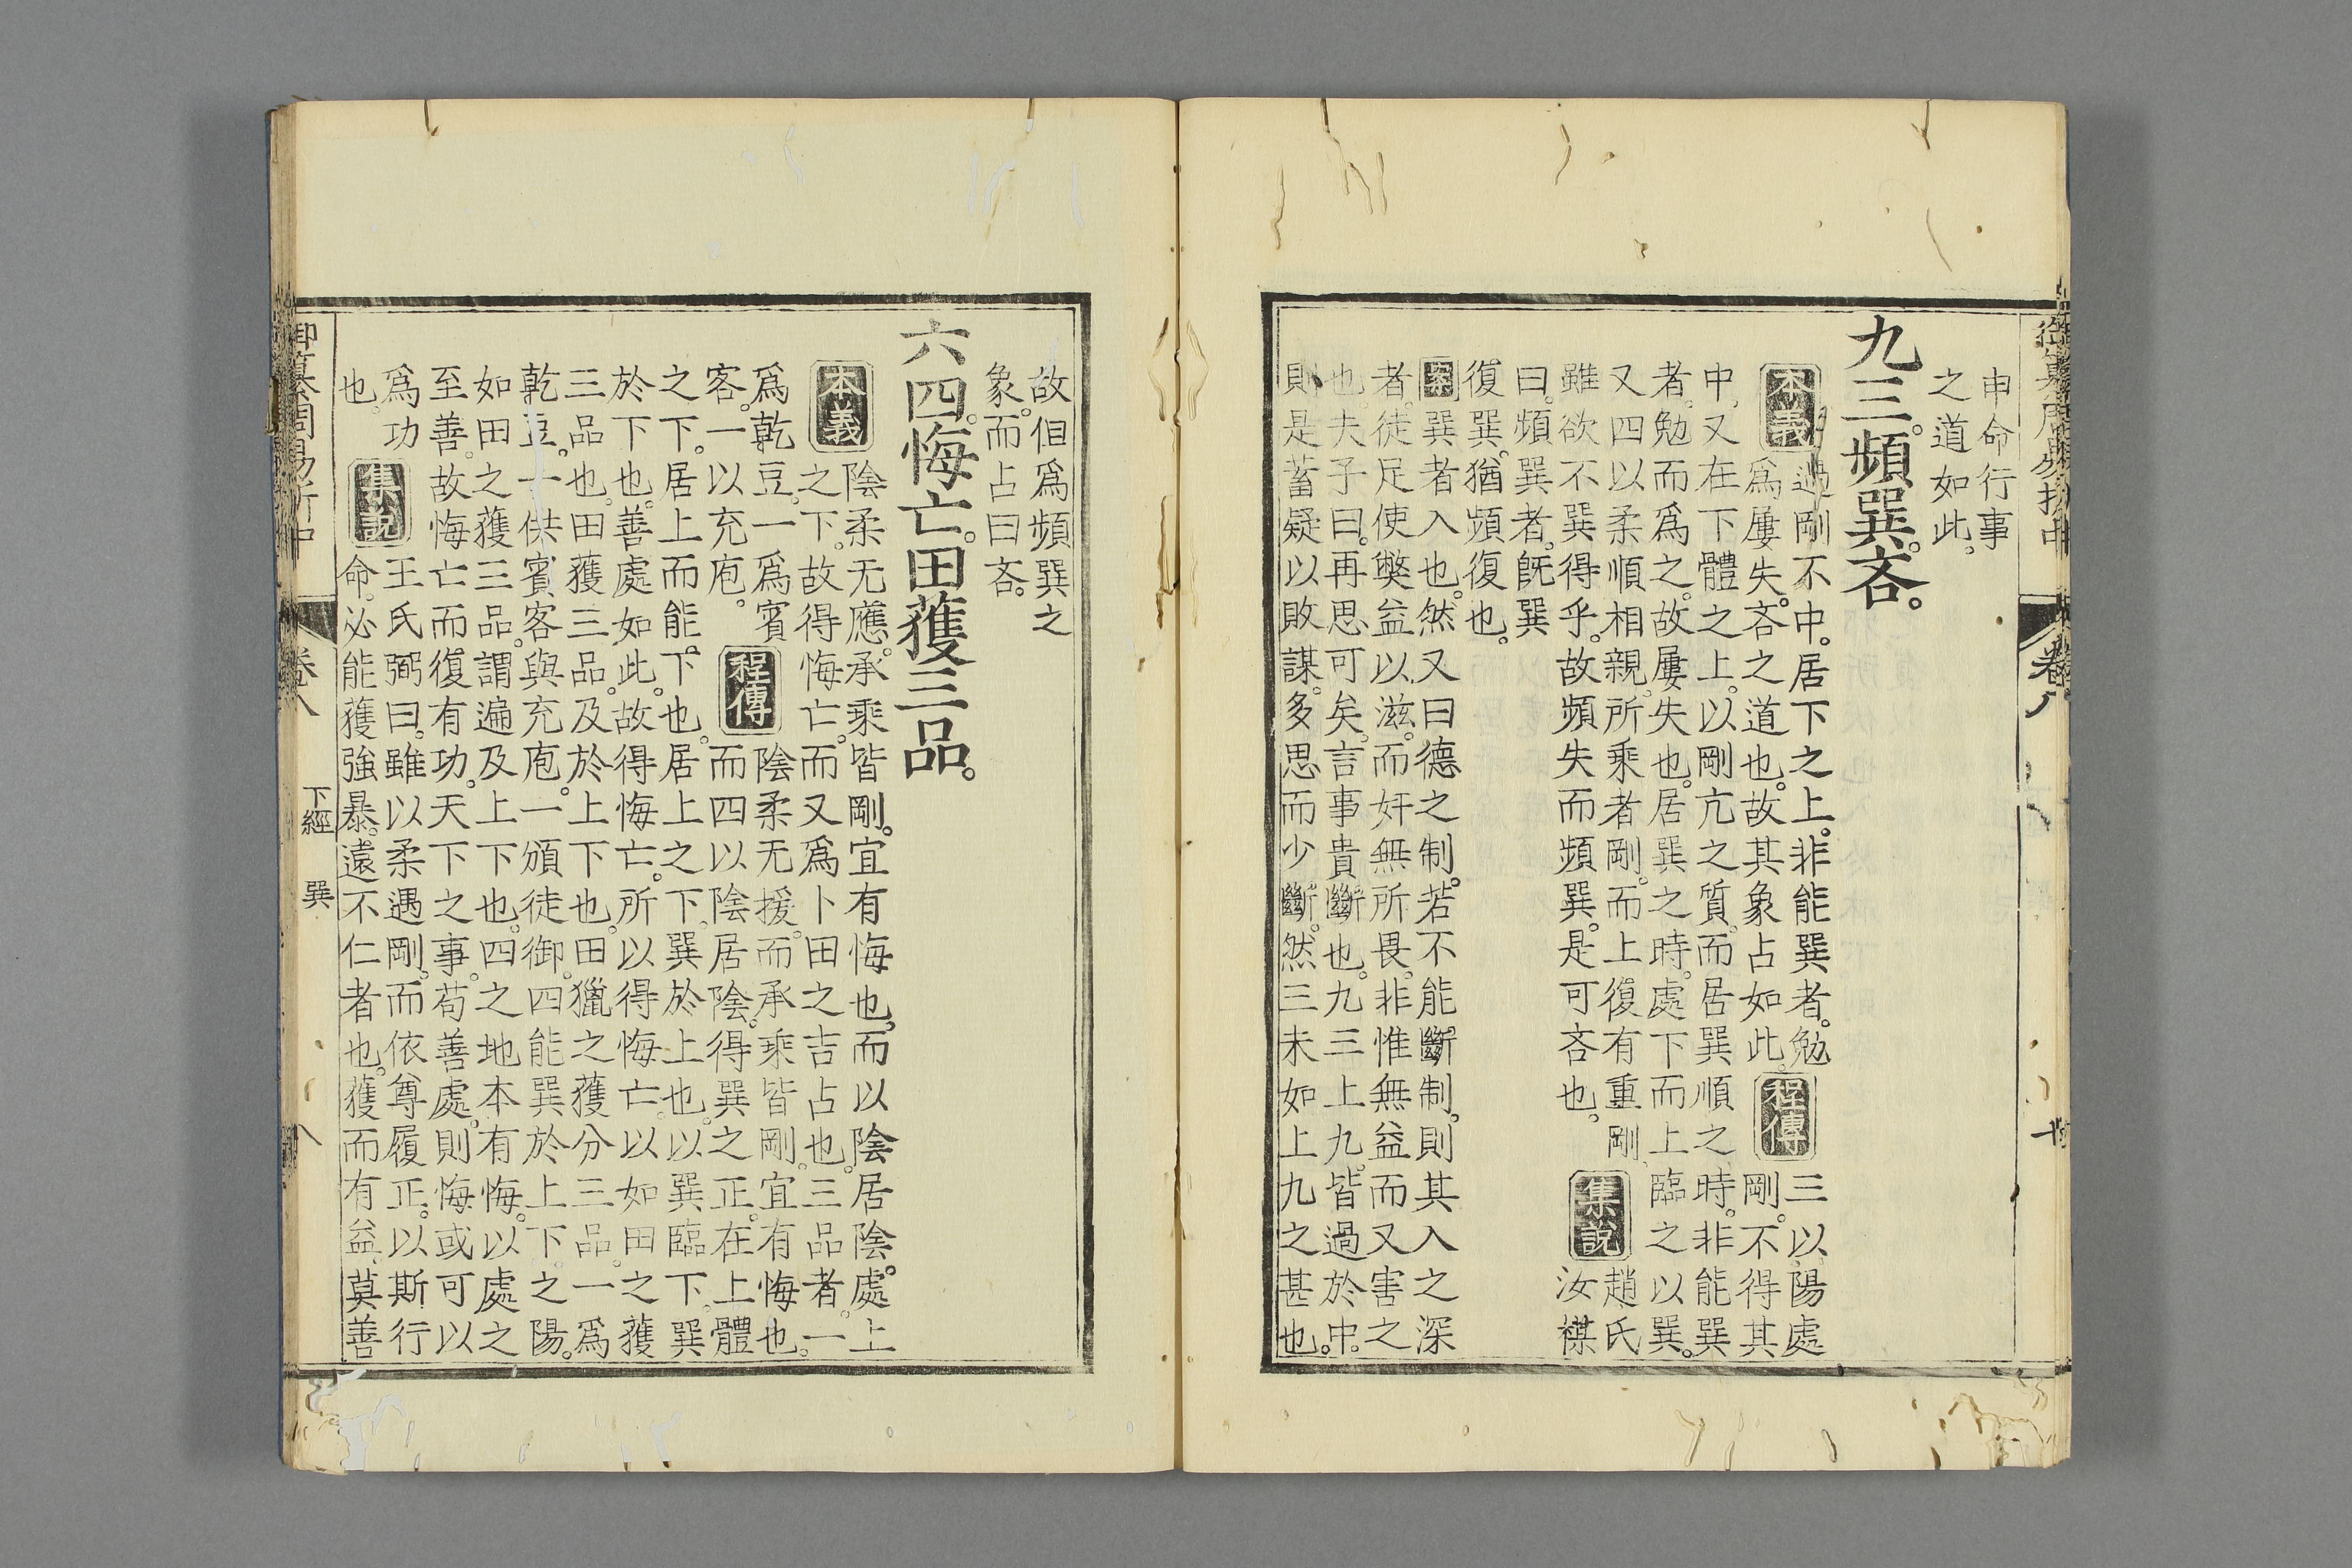 御纂周易折中 卷八 十
申命行事
之道如此。
九三。頻巽。吝。
本義 過剛不中。居下之上。非能巽者。勉
爲屢失。吝之道也。故其象占如此。
程傳 三以陽處
剛。不得其
中。又在下體之上。以剛亢之質。而居巽順之時。非能巽
者。勉而爲之。故屢失也。居巽之時。處下而上臨之以巽。
又四以柔順相親。所乘者剛。而上復有重剛。
雖欲不巽得乎。故頻失而頻巽。是可吝也。
集說 趙氏
汝楳
曰。頻巽者。旣巽
復巽。猶頻復也。
案 巽者入也。然又曰德之制。若不能斷制。則其入之深
者。徒足使弊益以滋。而奸無所畏。非惟無益而又害之
也。夫子曰。再思可矣。言事貴斷也。九三上九。皆過於中。
則是蓄疑以敗謀。多思而少斷。然三未如上九之甚也。
故但爲頻巽之
象。而占曰吝。
六四。悔亡。田獲三品。
本義 陰柔无應。承乘皆剛。宜有悔也。而以陰居陰。處上
之下。故得悔亡。而又爲卜田之吉占也。三品者。一
爲乾豆。一爲賓
客。一以充庖。
程傳 陰柔无援。而承乘皆剛。宜有悔也。
而四以陰居陰。得巽之正。在上體
之下。居上而能下也。居上之下。巽於上也。以巽臨下。巽
於下也。善處如此。故得悔亡。所以得悔亡。以如田之獲
三品也。田獲三品。及於上下也。田獵之獲分三品。一爲
乾豆。一供賓客與充庖。一頒徒御。四能巽於上下之陽。
如田之獲三品。謂遍及上下也。四之地本有悔。以處之
至善。故悔亡而復有功。天下之事。苟善處。則悔或可以
爲功
也。
集說 王氏弼曰。雖以柔遇剛。而依尊履正。以斯行
命。必能獲強暴。遠不仁者也。獲而有益。莫善
御纂周易折中 卷八 下經 巽